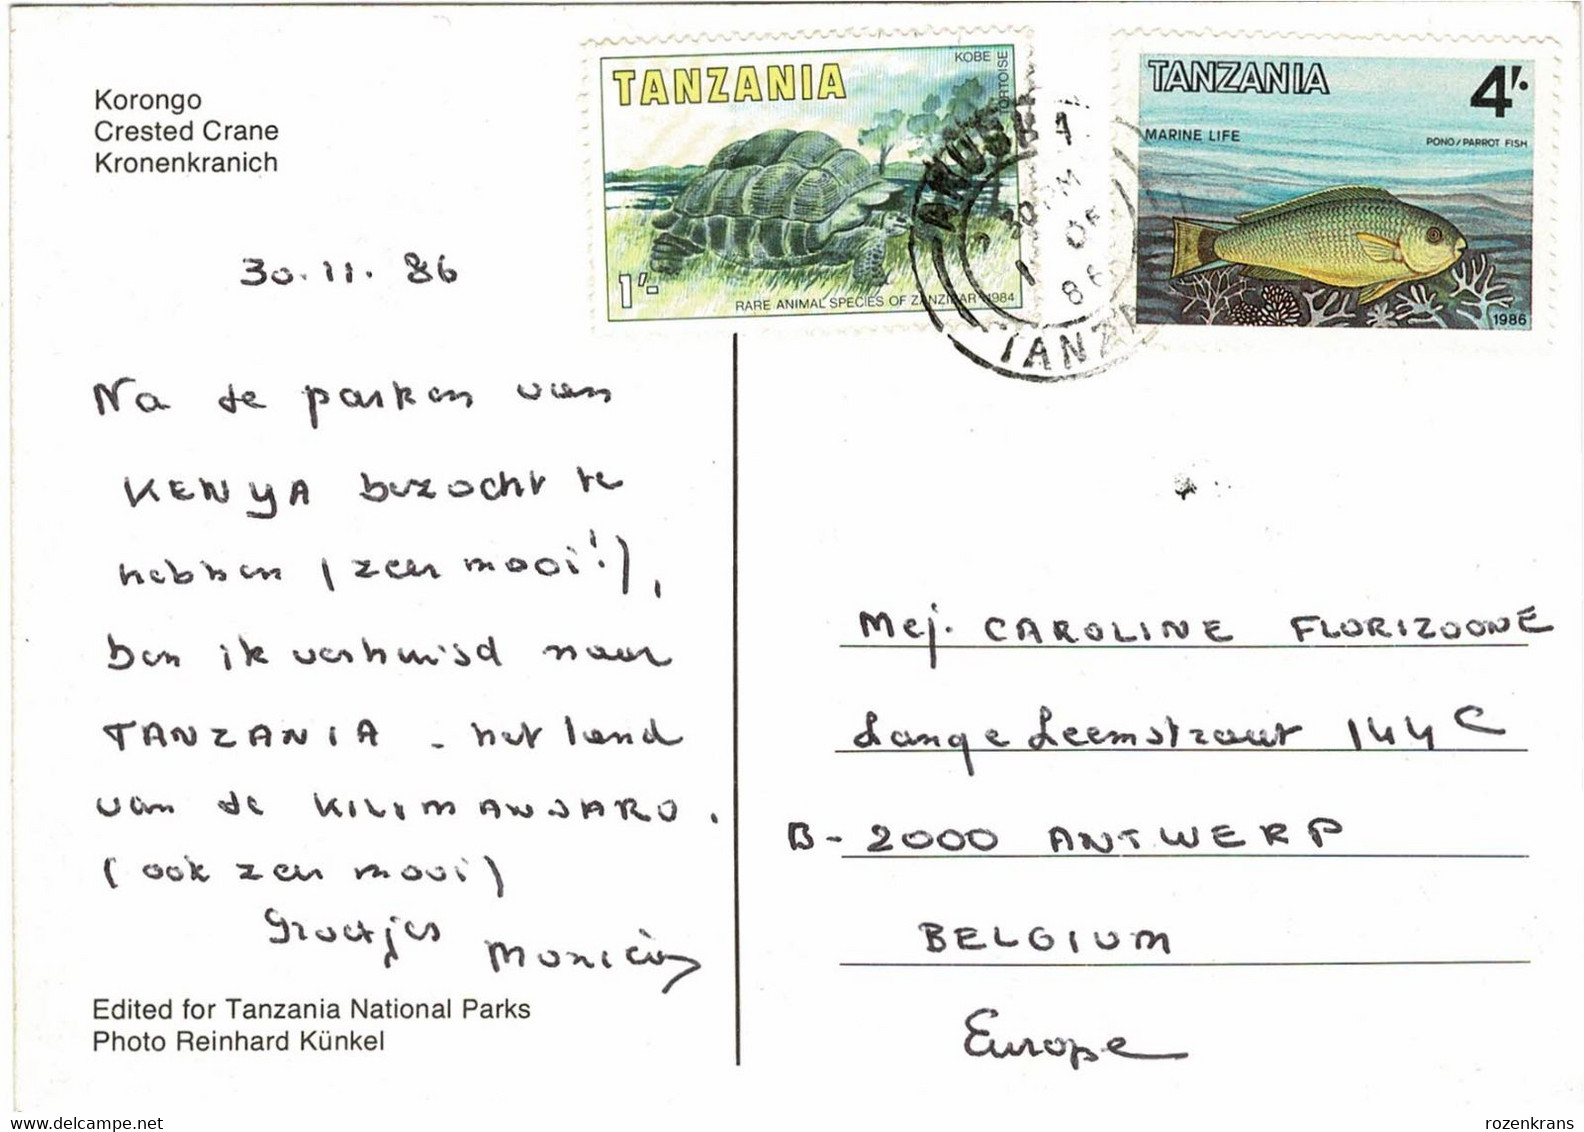 Korongo
Crested Crane
Kronenkranich
30.11.86
Na de parken van
KENYA bezocht te
hebben (zeer mooi!),
ben ik verhuisd naar
TANZANIA - het land
van de KILIMANJARO.
(ook zeer mooi)
Groetjes
Edited for Tanzania National Parks
Photo Reinhard Künkel
TANZANIA
KOBE
TORTOISE
1/-
RARE ANIMAL SPECIES OF ZANZIBAR 1984
TANZANIA
4/-
MARINE LIFE
PONO/PARROT FISH
1986
ARUSHA
30 PM
86
TANZA
Mej. CAROLINE FLORIZOONE
Lange Leemstraat 144 C
B-2000 ANTWERP
BELGIUM
Europe
delcampe.net
rozenkrans